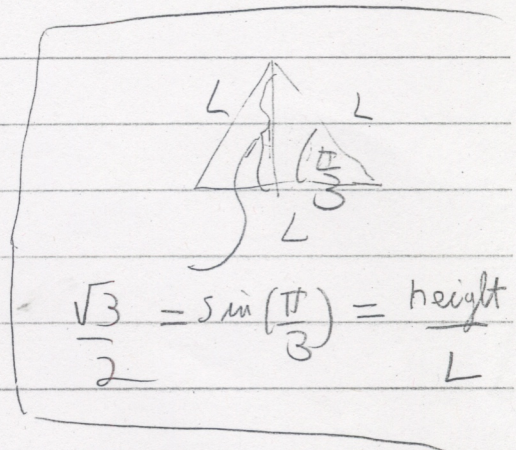 L L
π/3
L
√3/2 = sin(π/3) = height/L